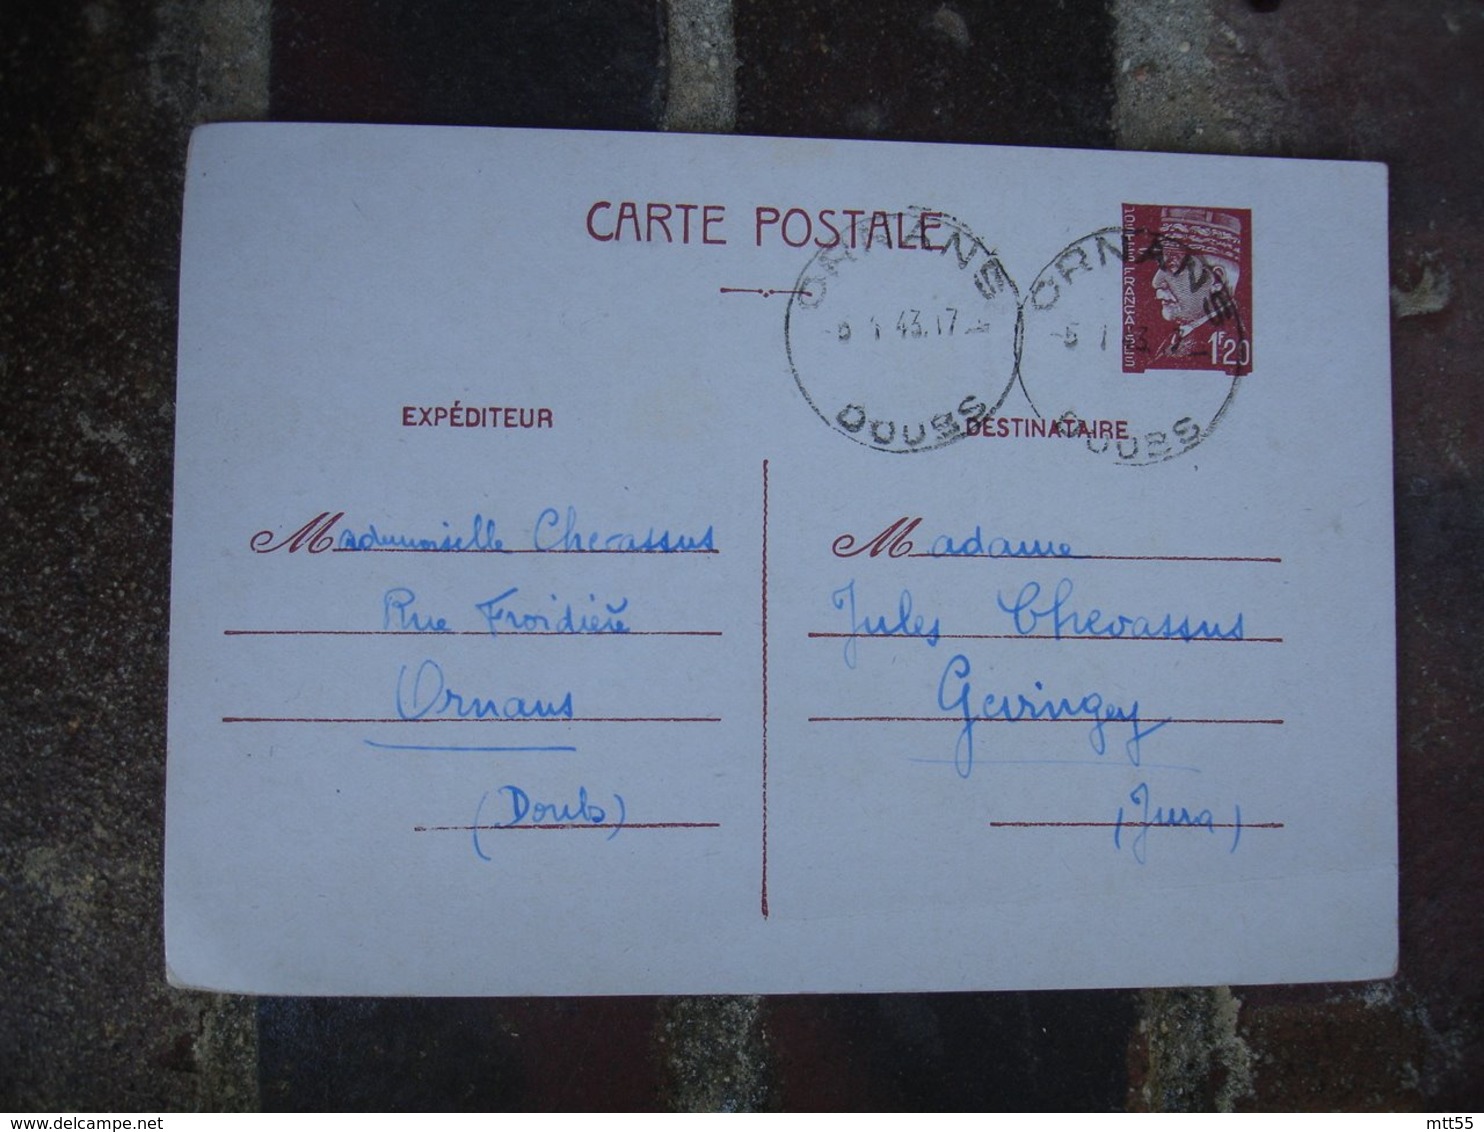 CARTE POSTALE
POSTES FRANÇAISES
1F20
ORNANS
43.17
DOUBS
ORNANS
DOUBS
EXPÉDITEUR
Mademoiselle Chevassus
Rue Froidière
Ornans
(Doubs)
DESTINATAIRE
Madame
Jules Chevassus
Gevingey
(Jura)
delcampe.net
mtt55